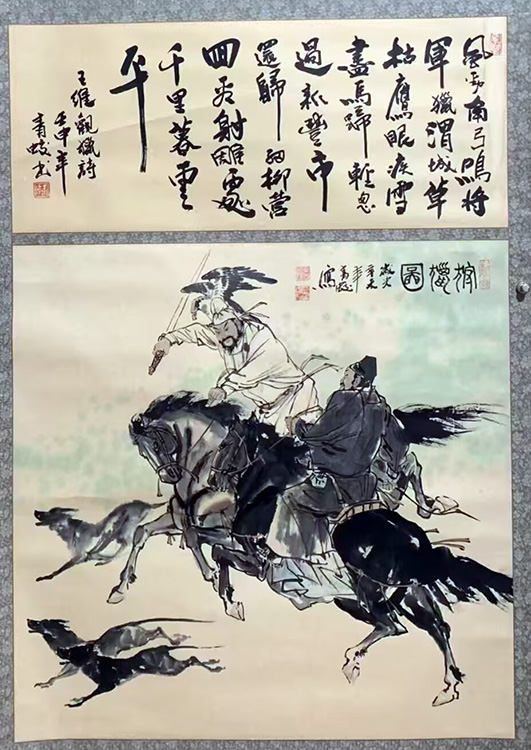 風勁角弓鳴將
軍獵渭城草
枯鷹眼疾雪
盡馬蹄輕忽
過新豐市
還歸細柳營
回看射雕處
千里暮雲
平
王維觀獵詩
壬申年
青
狩獵圖
歲次
辛未
年
寫